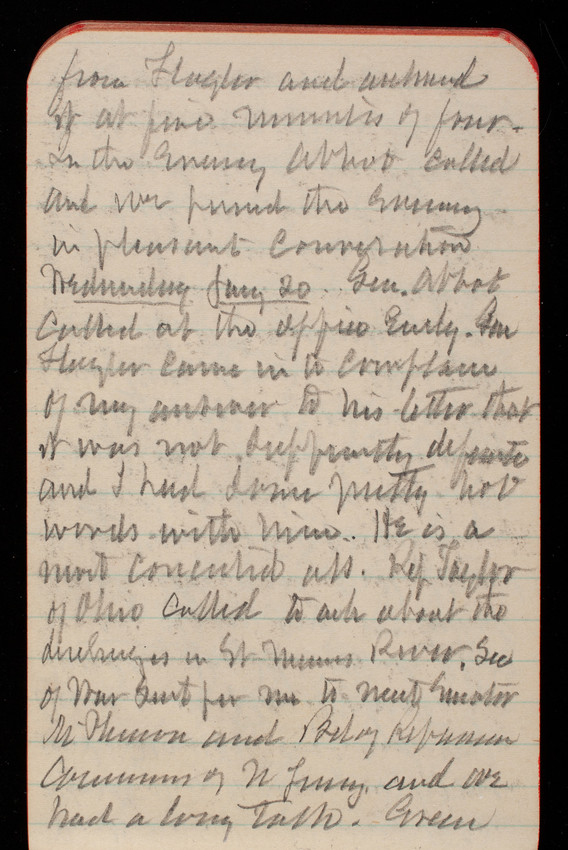 from Flagler and answered
it at five minutes of four.
In the Evening Abbot called
and we passed the Evening
in pleasant Conversation
Wednesday Jany 20. Gen. Abbot
Called at the office Early. Gen
Flagler came in to complain
of my answer to his letter that
it was not sufficiently definite
and I had some pretty hot
words with him. He is a
most conceited ass. Rep. Taylor
of Ohio called to ask about the
dredging in St Marys River. Sec
of War sent for me to meet Senator
McPherson and
of N Jersey and we
had a long talk. Green